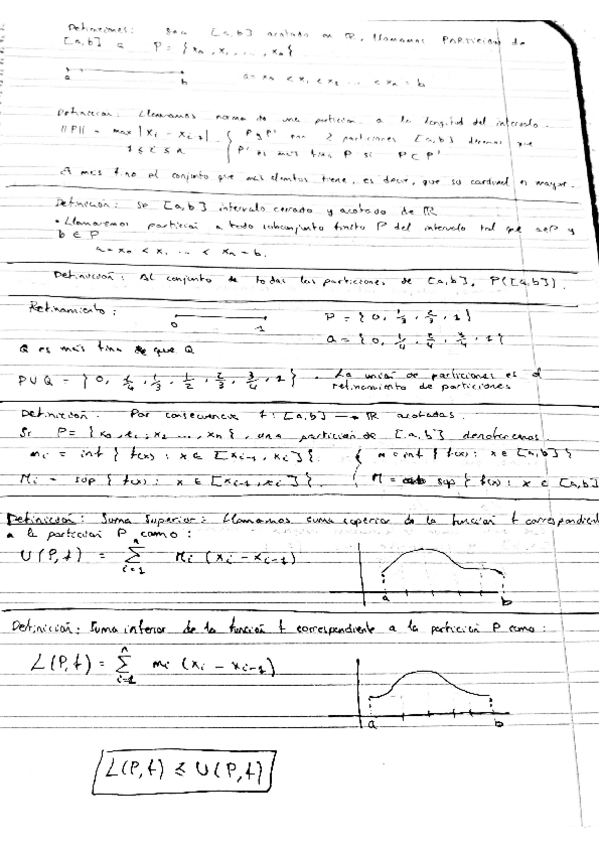 Definiciones: Sea [a,b] acotado en R, llamamos PARTICIÓN de
[a,b] a P = {x₀, x₁, ..., xₙ}
a b a = x₀ < x₁ < x₂ ... < xₙ = b
Definición: Llamamos norma de una partición a la longitud del intervalo
||P|| = max |xᵢ - xᵢ₋₁| { P y P' son 2 particiones [a,b] diremos que
1 ≤ i ≤ n { P' es más fina P si P ⊂ P'
A más fino el conjunto que más elementos tiene, es decir, que su cardinal es mayor.
Definición: Sea [a,b] intervalo cerrado y acotado de R
• Llamaremos partición a todo subconjunto finito P del intervalo tal que a∈P y
b ∈ P
a = x₀ < x₁ ... < xₙ = b.
Definición: Al conjunto de todas las particiones de [a,b], P([a,b]).
Refinamiento: P = {0, 1/3, 2/3, 1}
0 1 Q = {0, 1/4, 2/4, 3/4, 1}
Q es más fina que Q
P∪Q = {0, 1/4, 1/3, 1/2, 2/3, 3/4, 1}. La unión de particiones es el
refinamiento de particiones
Definición. Por consecuencia f: [a,b] → R acotadas.
Si P = {x₀, x₁, x₂ ..., xₙ}, una partición de [a,b] denotaremos
mᵢ = inf {f(x) : x ∈ [xᵢ₋₁, xᵢ]}. { m = inf {f(x) : x ∈ [a,b]}
Mᵢ = sup {f(x) : x ∈ [xᵢ₋₁, xᵢ]}. { M = sup {f(x) : x ∈ [a,b]
Definición: Suma Superior: Llamamos suma superior de la función f correspondient
a la partición P como:
U(P,f) = n∑i=1 Mᵢ (xᵢ - xᵢ₋₁)
a b
Definición: Suma inferior de la función f correspondiente a la partición P como:
L(P,f) = n∑i=1 mᵢ (xᵢ - xᵢ₋₁)
a b
L(P,f) ≤ U(P,f)